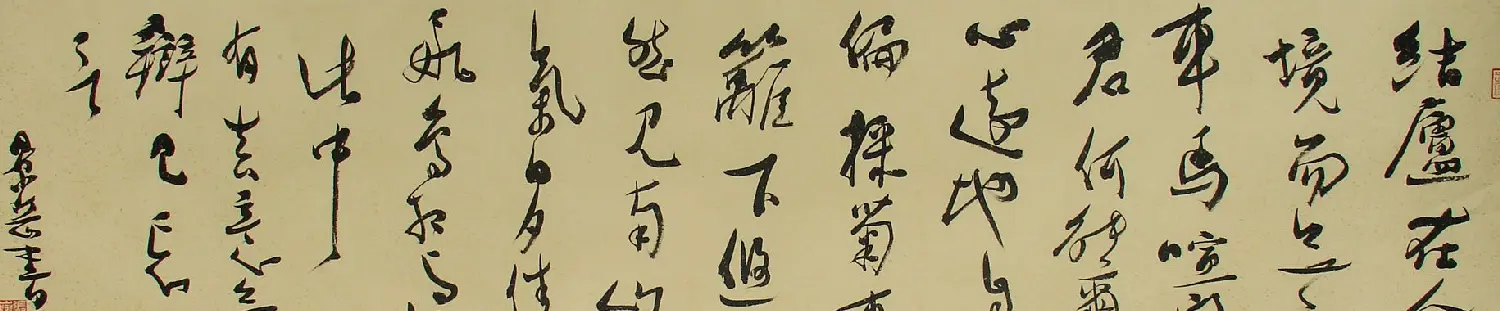 結廬在人
境而無
車馬喧
君何能爾
心遠地自
偏採菊東
籬下悠
然見南山
氣日夕佳
飛鳥相與
此中
有真意欲
辯已忘
言
書